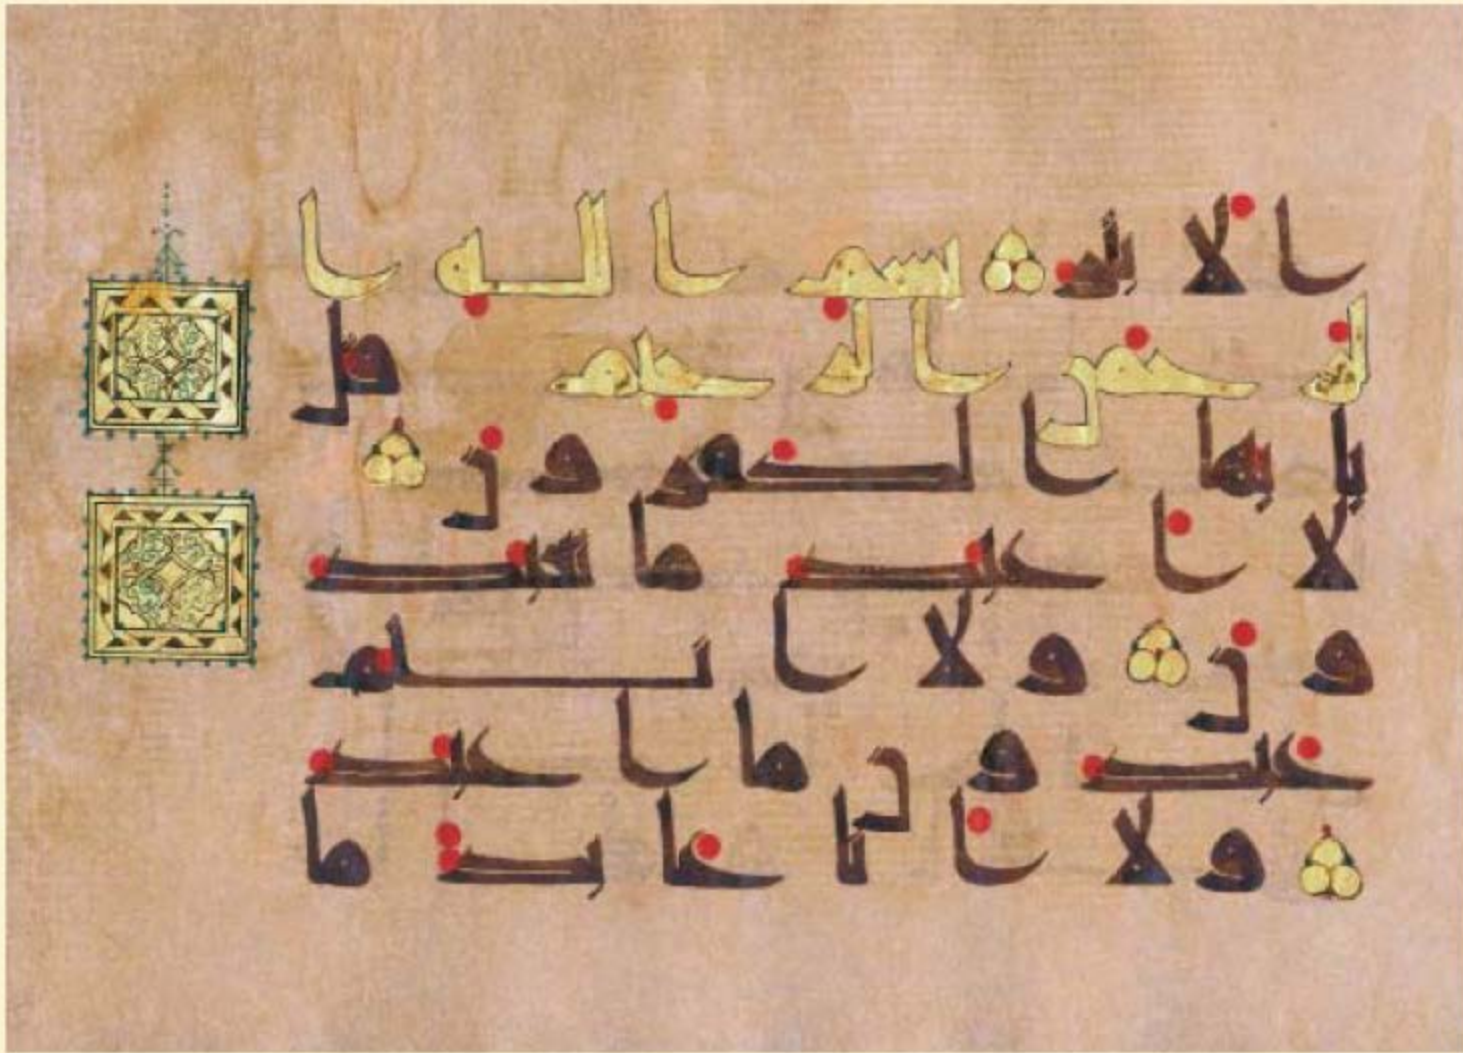 الابتر بسم الله ا
لرحمن الرحيم قل
يايها الكفرون
لا اعبد ما تعبد
ون ولا انتم
عبدون ما اعبد
ولا انا عابد ما